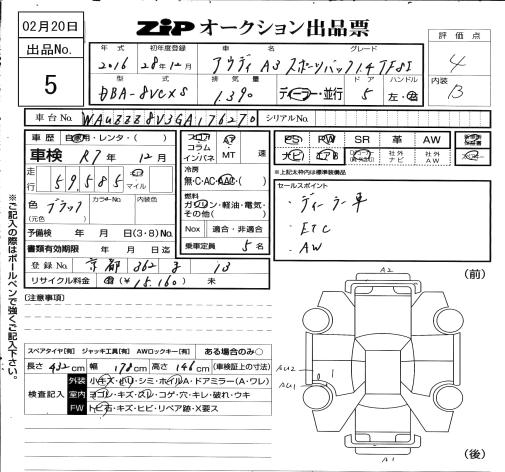 02月20日
ZIP オークション出品票
出品No.
5
評価点
4
内装
B
年式 初年度登録 車名 グレード
2016 28年12月 アウディ A3 スポーツバック 1.4 TFSI
型式 排気量 ドア ハンドル
DBA-8VCXS 1.390 ディーラー・並行 5 左・右
車台No. WAUZZZ8V3GA176270 シリアルNo.
車歴 自家用・レンタ・( )
車検 R7年 12月
走行 59,585 マイル
色 ブラック カラーNo. 内装色
(元色)
予備検 年 月 日(3・8)No.
書類有効期限 年 月 日迄
登録No. 京都 362 13
リサイクル料金 (¥15,160) 未
フロア AT
コラム MT 速
インパネ
冷房
無・C・AC・AAC・( )
燃料
ガソリン・軽油・電気・
その他( )
Nox 適合・非適合
乗車定員 5名
PS PW SR 革 AW
ナビ エアB 社外ナビ 社外AW
*上記太枠内は標準装備品
セールスポイント
・ディーラー車
・ETC
・AW
(注意事項)
スペアタイヤ[有] ジャッキ工具[有] AWロックキー[有] ある場合のみ○
長さ 432cm 幅 178cm 高さ 146cm (車検証上の寸法)
検査記入
外装 小キズ・ヘコリ・シミ・ホイルA・ドアミラー(A・ワレ)
室内 ヨゴレ・キズ・スレ・コゲ・穴・キレ・破れ・ウキ
FW トビ石・キズ・ヒビ・リペア跡・X要ス
※ご記入の際はボールペンで強くご記入下さい。
(前)
A2
AU2
AU1
A1
(後)